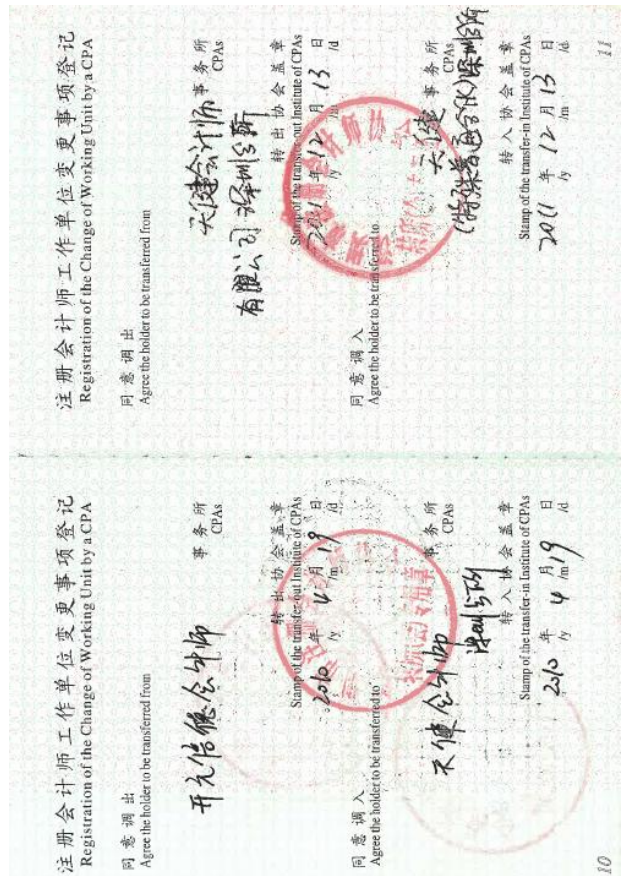 注册会计师工作单位变更事项登记
Registration of the Change of Working Unit by a CPA
同意调出
Agree the holder to be transferred from
开元信德会计师
事务所
CPAs
转出协会盖章
Stamp of the transfer-out Institute of CPAs
2010 年 4 月 19 日
/y /m /d
同意调入
Agree the holder to be transferred to
天健会计师
事务所
CPAs
深圳分所
转入协会盖章
Stamp of the transfer-in Institute of CPAs
2010 年 4 月 19 日
/y /m /d
10
注册会计师工作单位变更事项登记
Registration of the Change of Working Unit by a CPA
同意调出
Agree the holder to be transferred from
天健会计师
事务所
CPAs
有限公司深圳分所
转出协会盖章
Stamp of the transfer-out Institute of CPAs
2011 年 12 月 13 日
/y /m /d
同意调入
Agree the holder to be transferred to
天健
事务所
CPAs
(特殊普通合伙)深圳分所
转入协会盖章
Stamp of the transfer-in Institute of CPAs
2011 年 12 月 13 日
/y /m /d
11